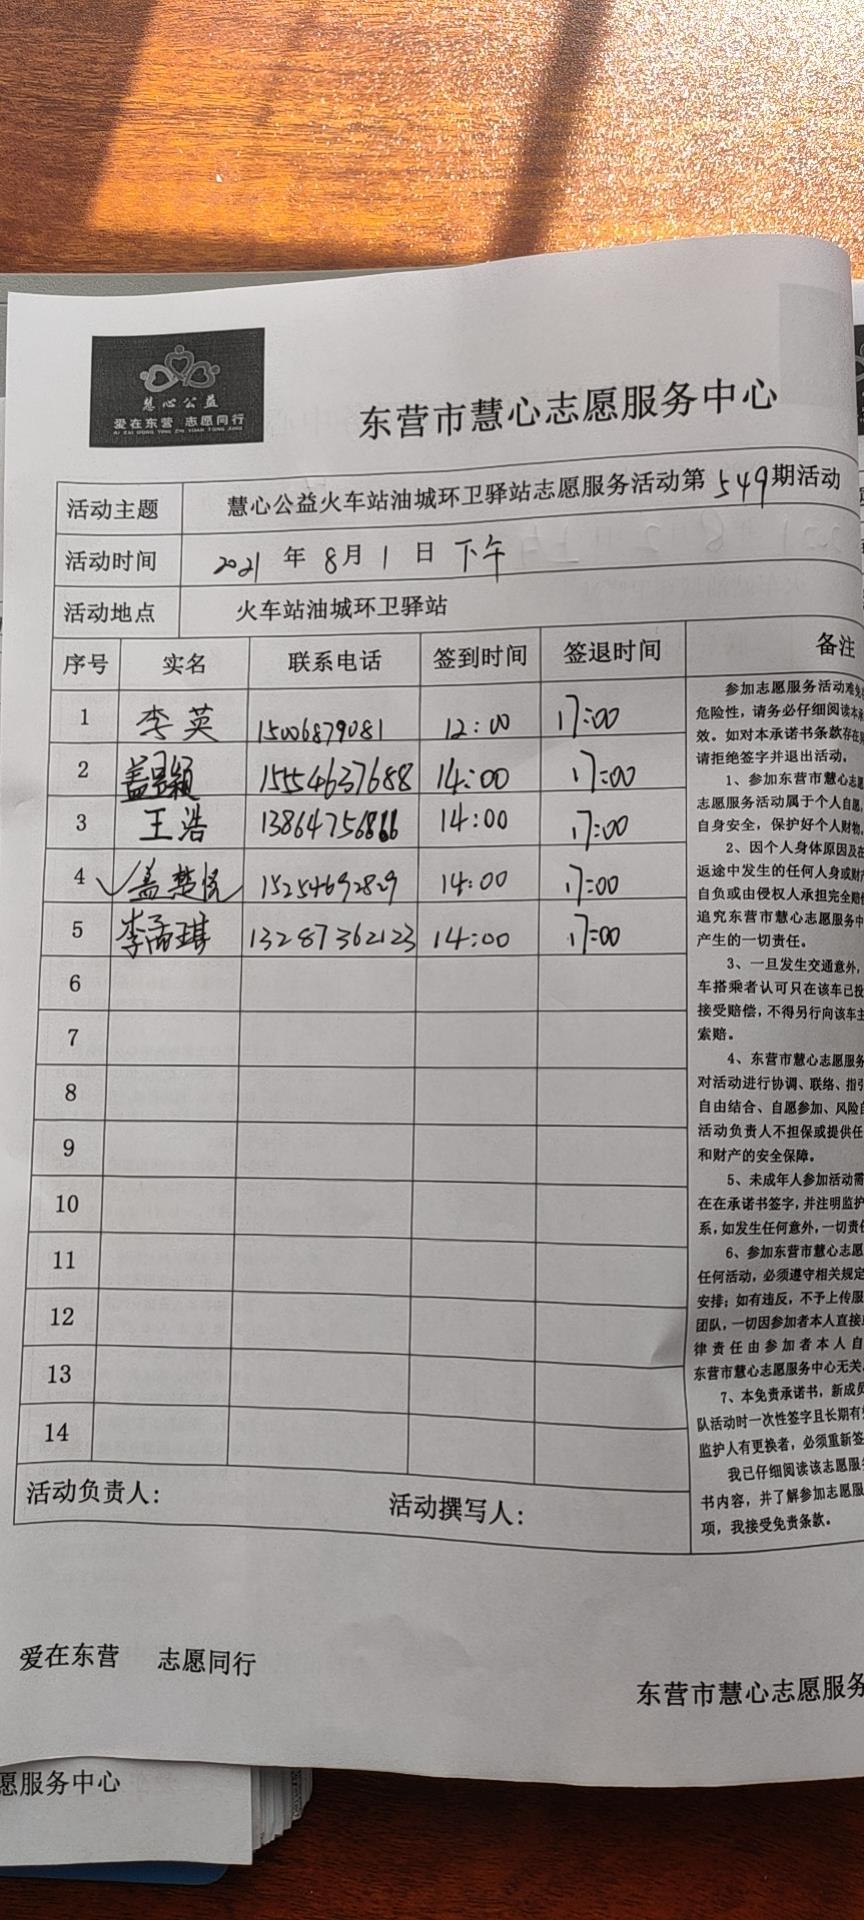 慧心公益
爱在东营 志愿同行
AI ZAI DONG YING ZHI YUAN TONG XING
东营市慧心志愿服务中心
活动主题 慧心公益火车站油城环卫驿站志愿服务活动第549期活动
活动时间 2021年8月1日下午
活动地点 火车站油城环卫驿站
序号 实名 联系电话 签到时间 签退时间 备注
1 李英 15006879081 12:00 17:00
2 15554637688 14:00 17:00
3 王浩 13864756866 14:00 17:00
4 盖楚悦 15254692829 14:00 17:00
5 李孟琪 13287362123 14:00 17:00
6
7
8
9
10
11
12
13
14
参加志愿服务活动难免
危险性，请务必仔细阅读本承
效。如对本承诺书条款存在
请拒绝签字并退出活动。
1、参加东营市慧心志愿
志愿服务活动属于个人自愿，
自身安全，保护好个人财物，
2、因个人身体原因及在
返途中发生的任何人身或财产
自负或由侵权人承担完全赔偿
追究东营市慧心志愿服务中
产生的一切责任。
3、一旦发生交通意外，
车搭乘者认可只在该车已投
接受赔偿，不得另行向该车主
索赔。
4、东营市慧心志愿服务
对活动进行协调、联络、指引
自由结合、自愿参加、风险自
活动负责人不担保或提供任
和财产的安全保障。
5、未成年人参加活动需
在在承诺书签字，并注明监护
系，如发生任何意外，一切责任
6、参加东营市慧心志愿
任何活动，必须遵守相关规定
安排；如有违反，不予上传服
团队，一切因参加者本人直接或
律责任由参加者本人自
东营市慧心志愿服务中心无关。
7、本免责承诺书，新成员
队活动时一次性签字且长期有效
监护人有更换者，必须重新签
我已仔细阅读该志愿服务
书内容，并了解参加志愿服
项，我接受免责条款。
活动负责人： 活动撰写人：
爱在东营 志愿同行
东营市慧心志愿服务
愿服务中心